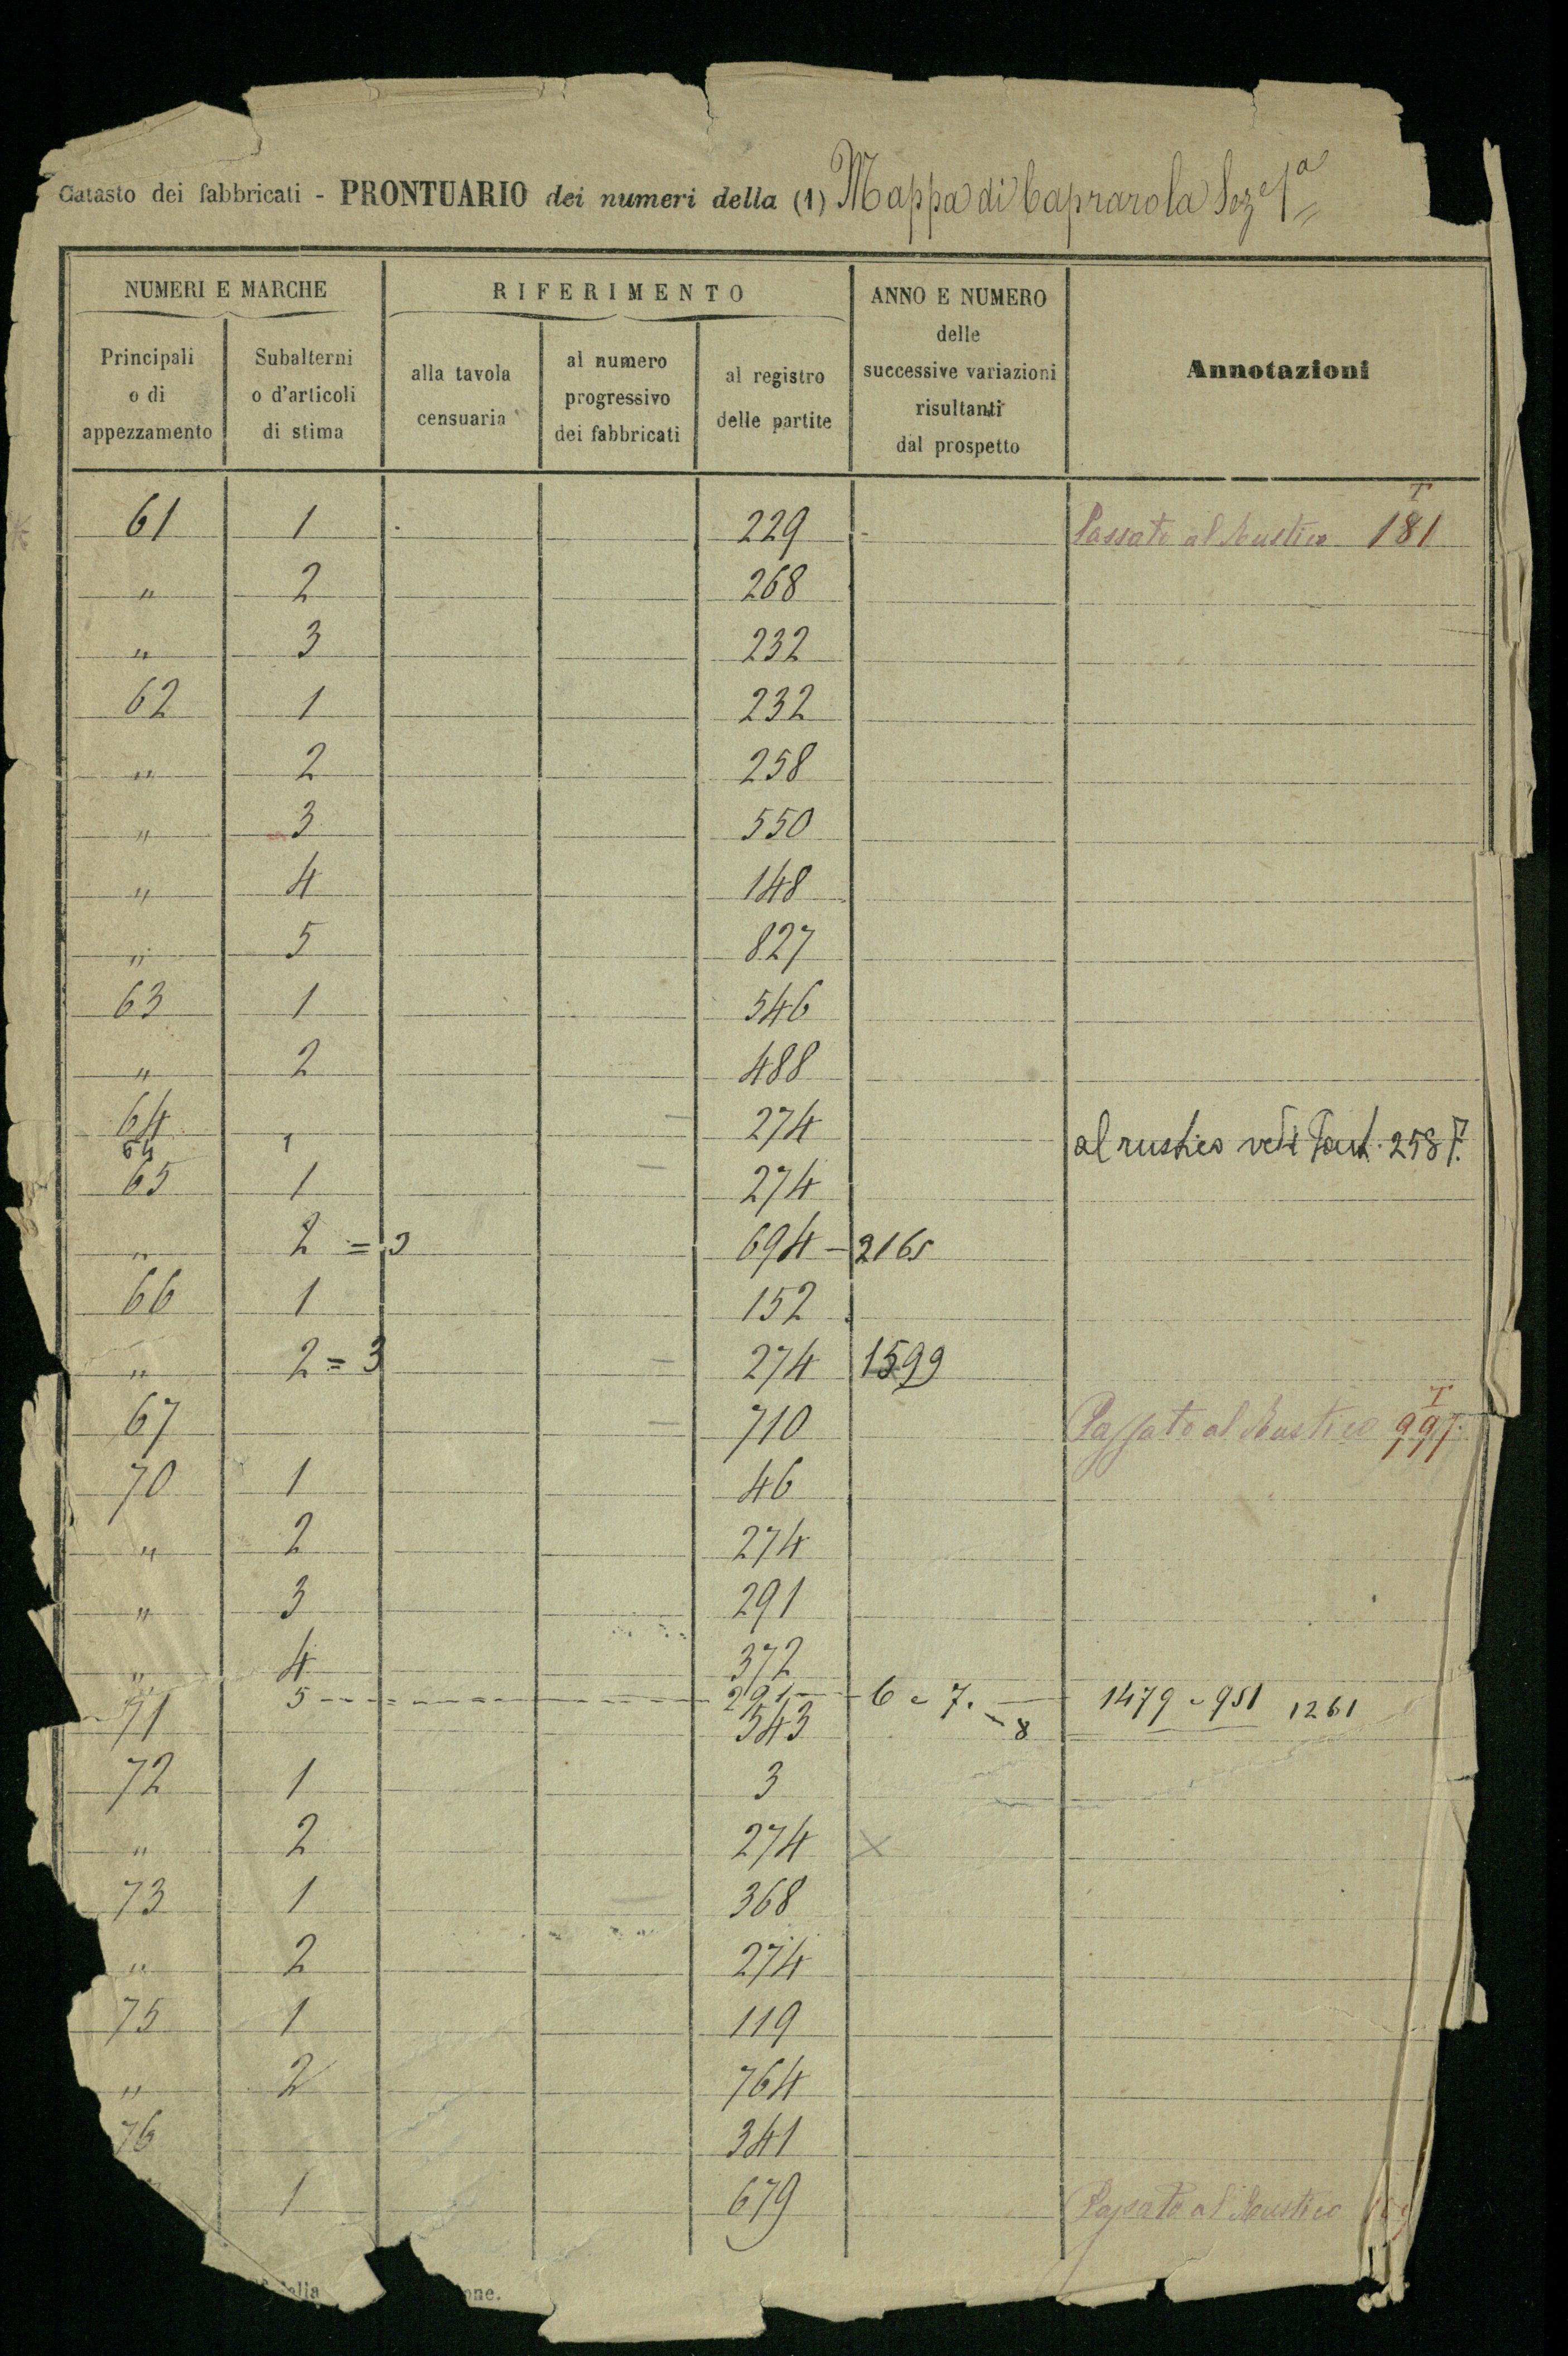 Catasto dei fabbricati - PRONTUARIO dei numeri della (1) Mappa di Caprarola Sez.e 1a
NUMERI E MARCHE
Principali o di appezzamento
Subalterni o d'articoli di stima
RIFERIMENTO
alla tavola censuaria
al numero progressivo dei fabbricati
al registro delle partite
ANNO E NUMERO delle successive variazioni risultanti dal prospetto
Annotazioni
61 1 229 Passato al Rustico T 181
" 2 268
" 3 232
62 1 232
" 2 258
" 3 550
" 4 148
" 5 827
63 1 546
" 2 488
64 274
64 1 al rustico vedi Part. 258 F.
65 1 274
" 2 = 3 694 - 2165
66 1 152
" 2 = 3 274 1599
67 710 Passato al Rustico T 997
70 1 46
" 2 274
" 3 291
" 4 372
5 291 6 - 7. - 8 1479 - 951 1261
71 543
72 1 3
" 2 274 X
73 1 368
" 2 274
75 1 119
" 2 764
76 341
1 679 Passato al Rustico
one.